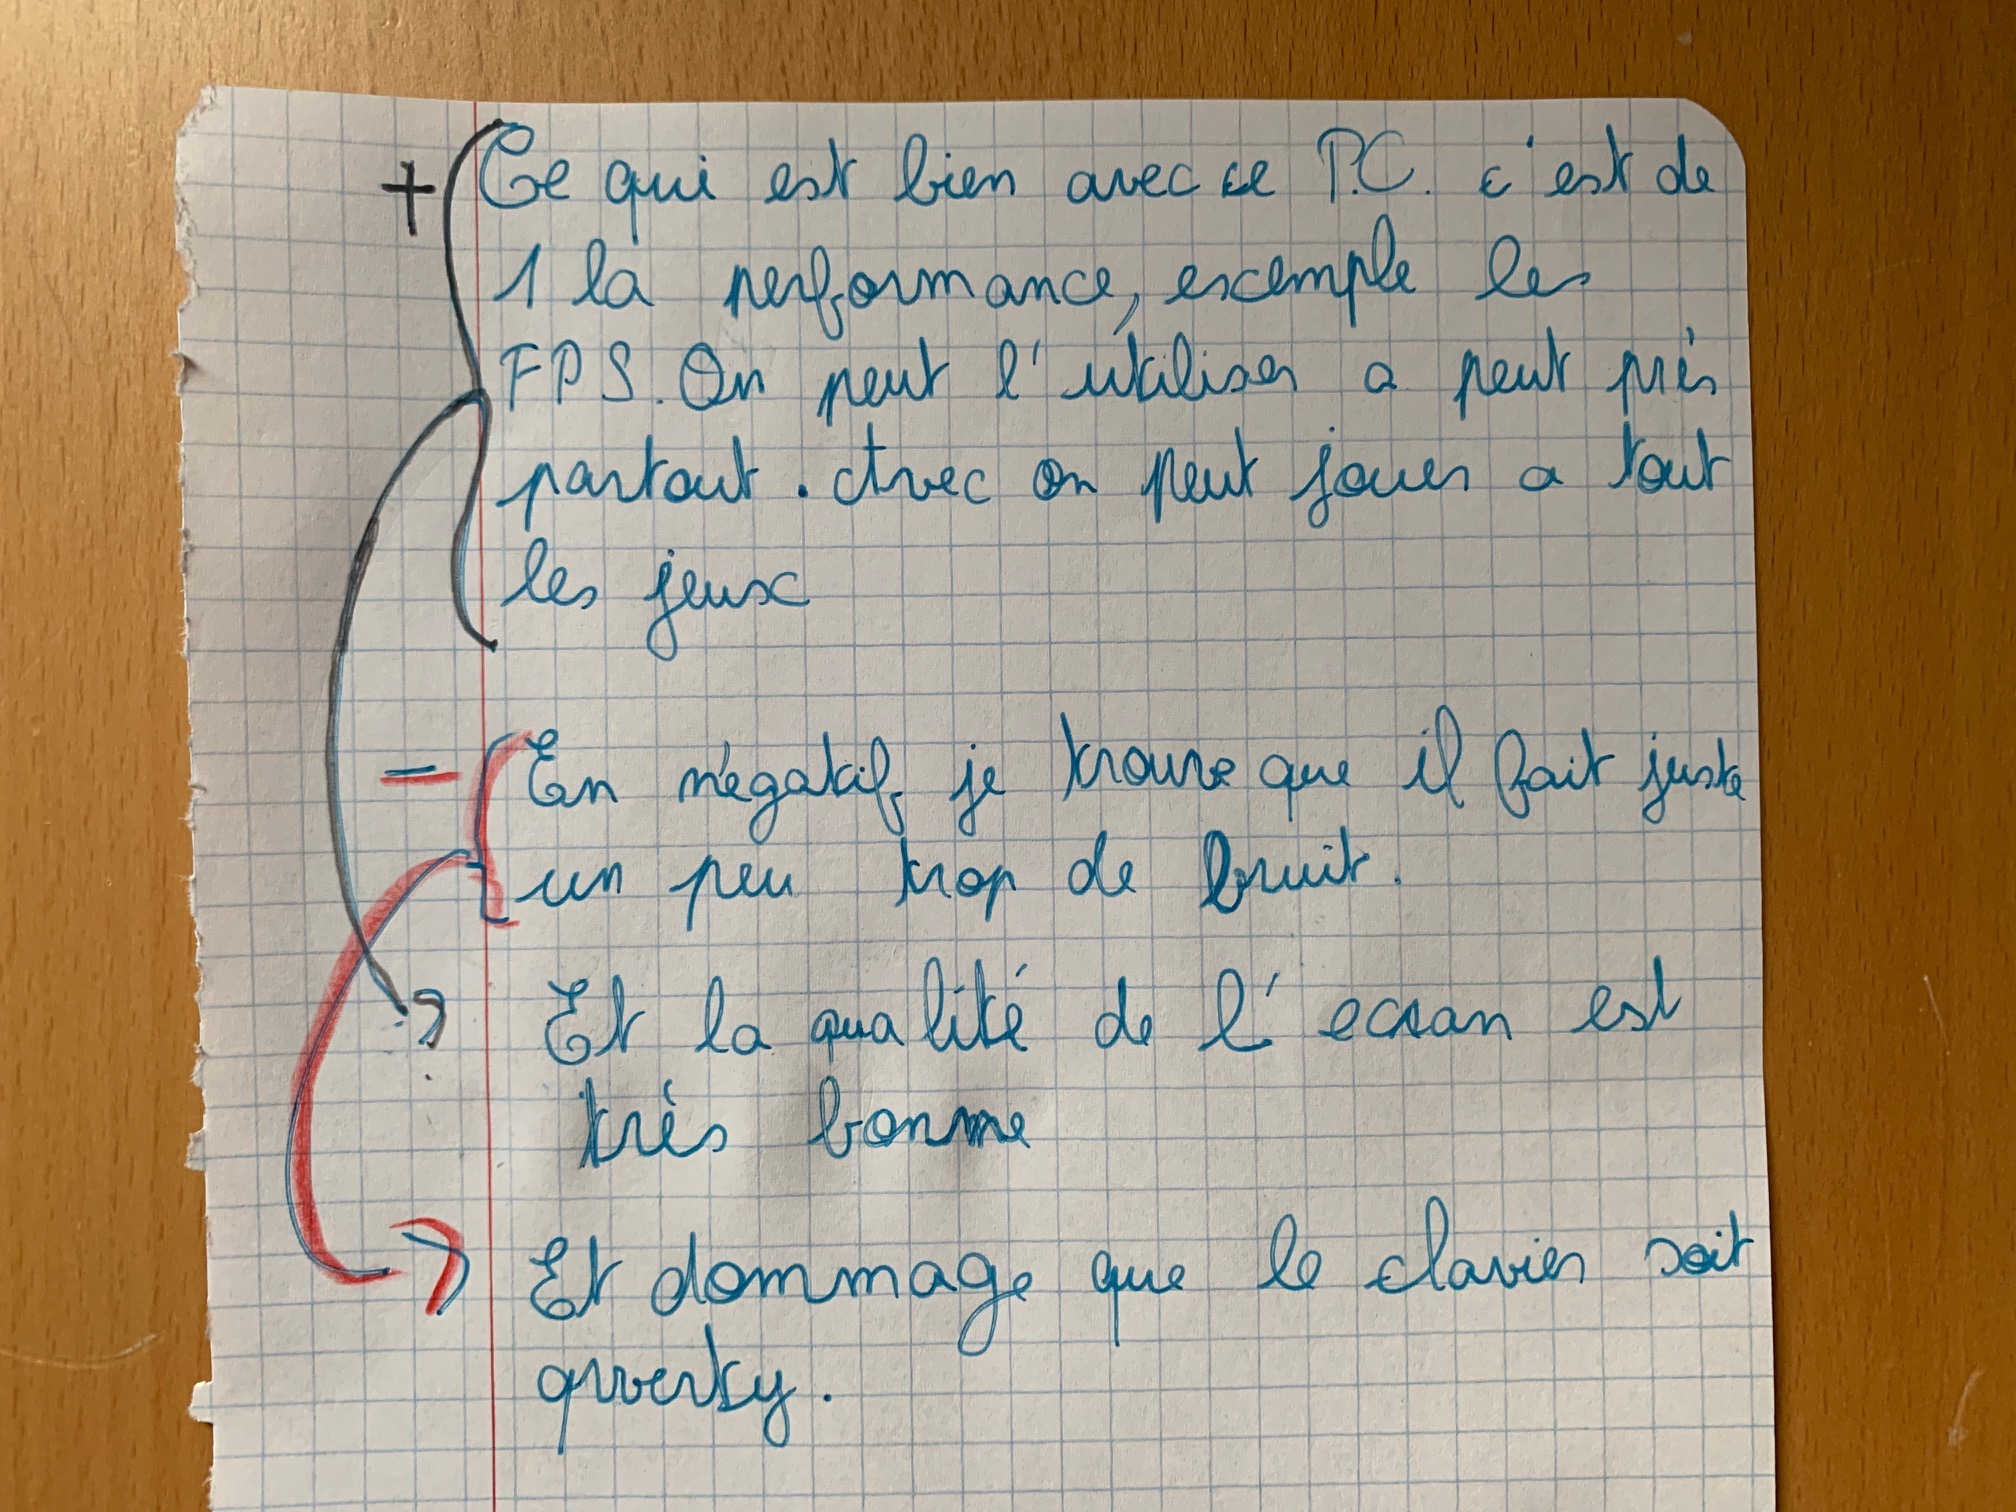 + Ce qui est bien avec ce P.C. c'est de
1 la performance, exemple les
FPS. On peut l'utiliser a peut près
partout. Avec on peut jouer a tout
les jeux
- En négatif je trouve que il fait juste
un peu trop de bruit.
→ Et la qualité de l'ecran est
très bonne
→ Et dommage que le clavier soit
qwerty.